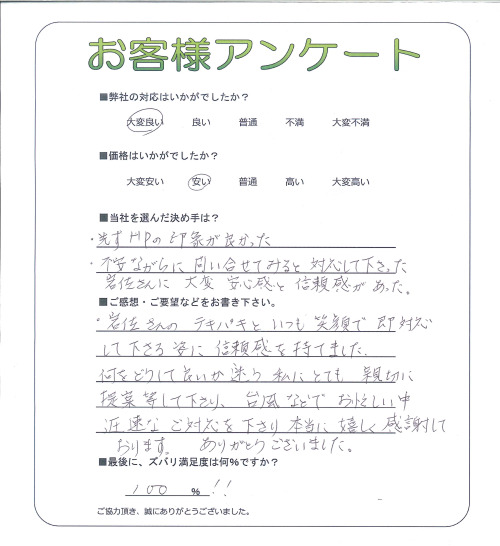 お客様アンケート
■弊社の対応はいかがでしたか？
大変良い 良い 普通 不満 大変不満
■価格はいかがでしたか？
大変安い 安い 普通 高い 大変高い
■当社を選んだ決め手は？
・先ずHPの印象が良かった
・不安ながらに問い合せてみると対応して下さった
岩佐さんに大変安心感と信頼感があった。
■ご感想・ご要望などをお書き下さい。
・岩佐さんのテキパキといつも笑顔で即対応
して下さる姿に信頼感を持てました。
何をどうして良いか迷う私にとても親切に
提案等して下さり、台風などでお忙しい中
迅速なご対応を下さり本当に嬉しく感謝して
おります。ありがとうございました。
■最後に、ズバリ満足度は何％ですか？
100 ％!!
ご協力頂き、誠にありがとうございました。